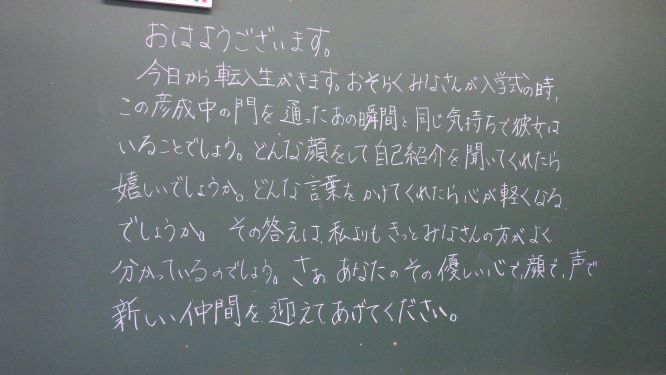 おはようございます。
今日から転入生がきます。おそらくみなさんが入学式の時、
この彦成中の門を通ったあの瞬間と同じ気持ちで彼女は
いることでしょう。どんな顔をして自己紹介を聞いてくれたら
嬉しいでしょうか。どんな言葉をかけてくれたら、心が軽くなる
でしょうか。その答えは、私よりもきっとみなさんの方がよく
分かっているのでしょう。さぁ、あなたのその優しい心で、顔で、声で
新しい仲間を迎えてあげてください。